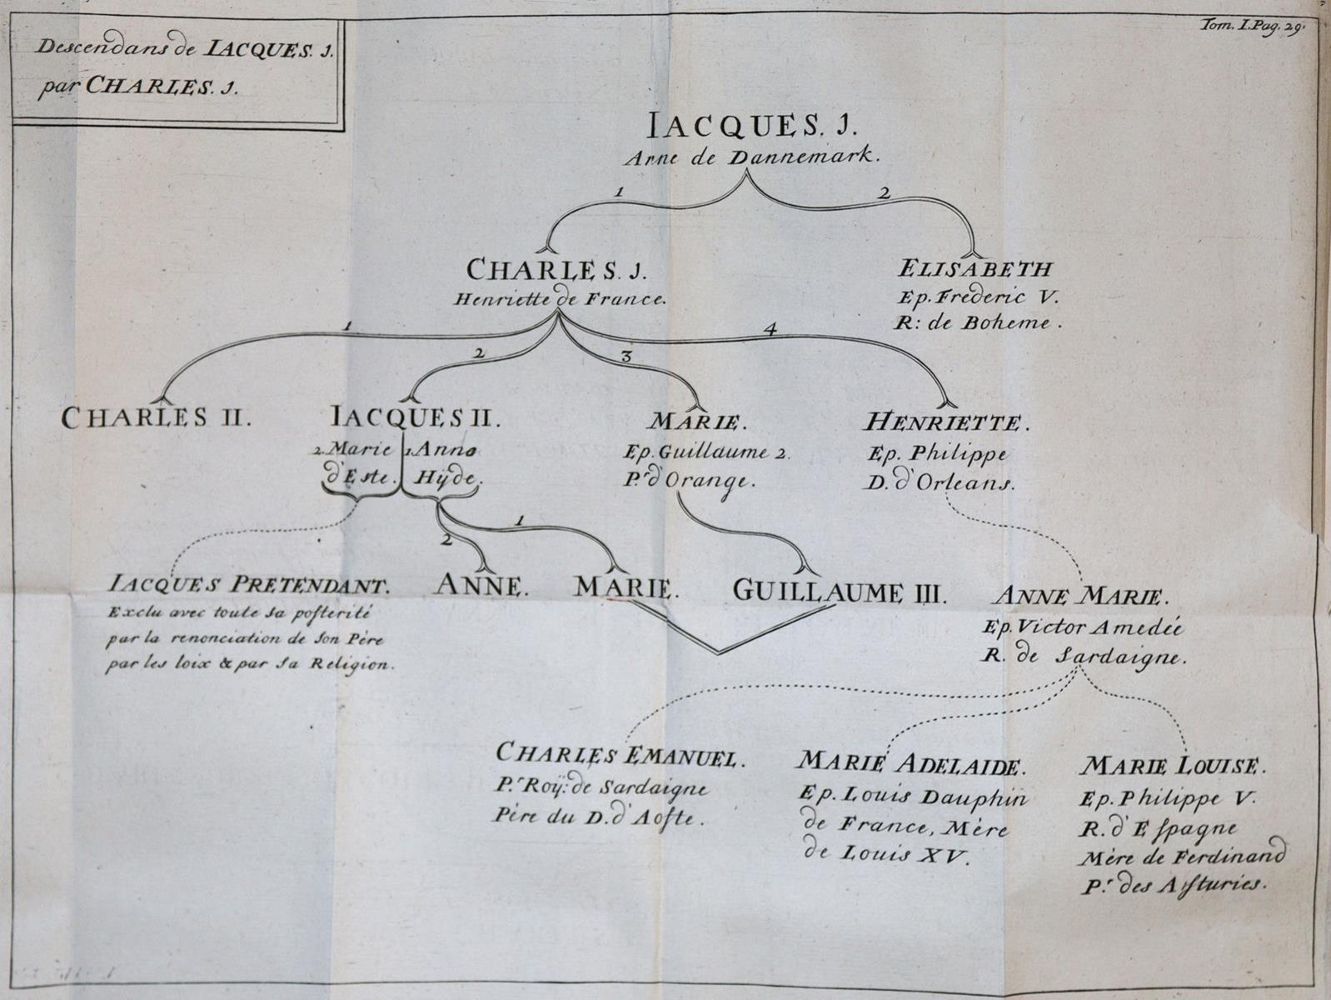 Tom. I. Pag. 29.
Descendans de IACQUES. J.
par CHARLES. J.
IACQUES. J.
Anne de Dannemark.
1
2
CHARLES. J.
Henriette de France.
ELISABETH
Ep. Frederic V.
R: de Boheme.
1
2
3
4
CHARLES II.
IACQUES II.
2. Marie
d'Este.
1. Anne
Hÿde.
MARIE.
Ep. Guillaume 2.
P.r d'Orange.
HENRIETTE.
Ep. Philippe
D. d'Orleans.
1
2
IACQUES PRETENDANT.
Exclu avec toute sa posterité
par la renonciation de son Père
par les loix & par sa Religion.
ANNE.
MARIE.
GUILLAUME III.
ANNE MARIE.
Ep. Victor Amedée
R. de Sardaigne.
CHARLES EMANUEL.
P.r Roÿ: de Sardaigne
Père du D. d'Aoste.
MARIE ADELAIDE.
Ep. Louis Dauphin
de France, Mère
de Louis XV.
MARIE LOUISE.
Ep. Philippe V.
R. d'Espagne
Mère de Ferdinand
P.r des Asturies.